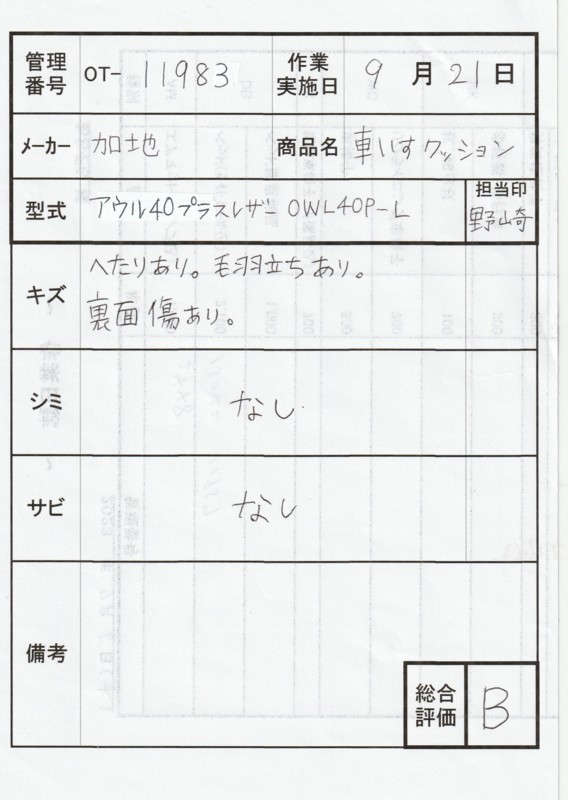 管理番号 OT- 11983 作業実施日 9月21日
メーカー 加地 商品名 車いすクッション
型式 アウル40プラスレザー OWL40P-L 担当印 野崎
キズ へたりあり。毛羽立ちあり。
裏面傷あり。
シミ なし
サビ なし
備考
総合評価 B